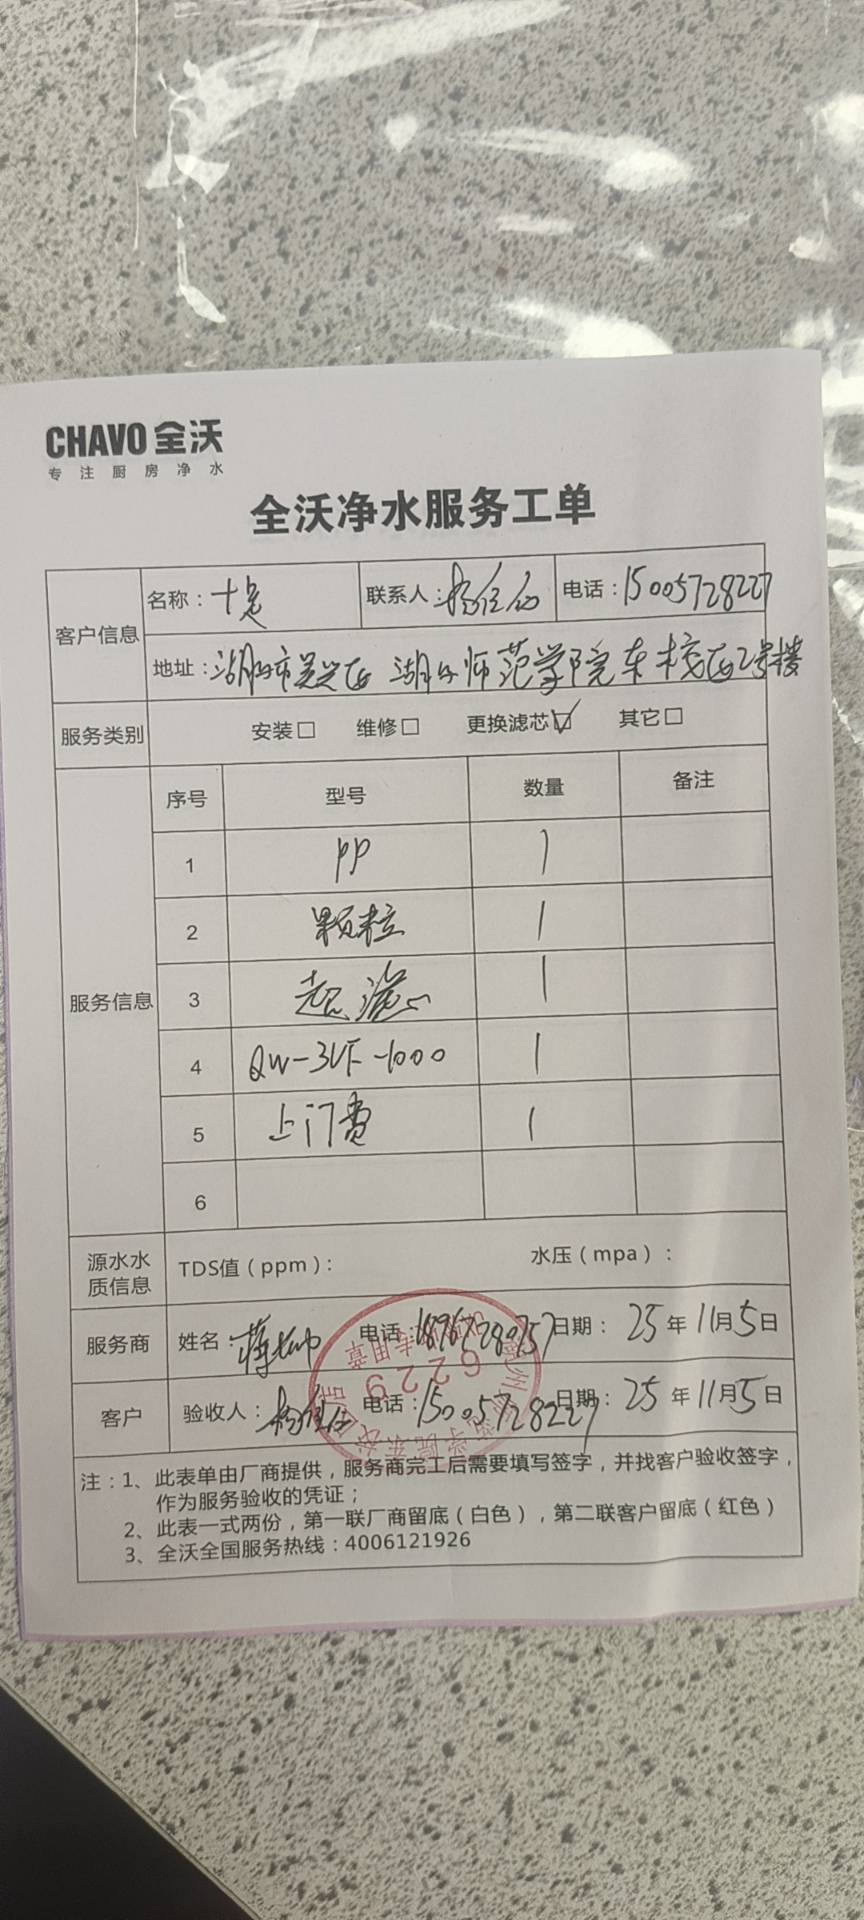 CHAVO 全沃
专注厨房净水
全沃净水服务工单
客户信息 名称：十足 联系人：杨 电话：15005728227
地址：湖州市吴兴区 湖州师范学院东校区2号楼
服务类别 安装□ 维修□ 更换滤芯☑ 其它□
服务信息
序号 型号 数量 备注
1 PP 1
2 颗粒 1
3 超滤 1
4 QW-3UF-1000 1
5 上门费 1
6
源水水质信息 TDS值（ppm）： 水压（mpa）：
服务商 姓名：蒋 电话：18967280757 日期：25年11月5日
客户 验收人：杨 电话：15005728227 日期：25年11月5日
6229
专用章
注：1、此表单由厂商提供，服务商完工后需要填写签字，并找客户验收签字，
作为服务验收的凭证；
2、此表一式两份，第一联厂商留底（白色），第二联客户留底（红色）
3、全沃全国服务热线：4006121926